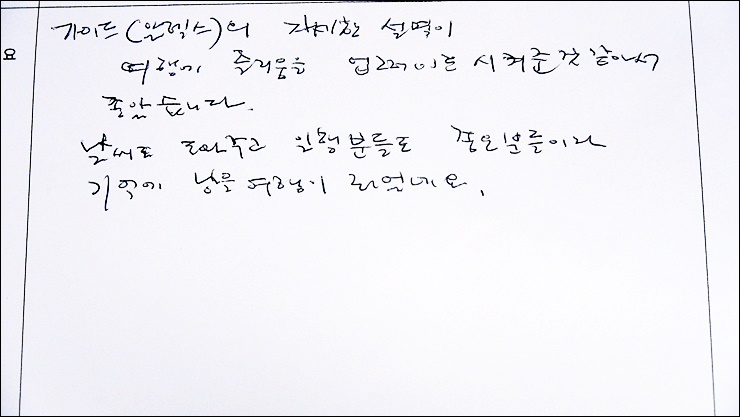 요
가이드(알렉스)의 자세한 설명이
여행의 즐거움을 업그레이드 시켜준것 같아서
좋았습니다.
날씨도 도와주고 일행분들도 좋은분들이라
기억에 남을 여행이 되었네요.